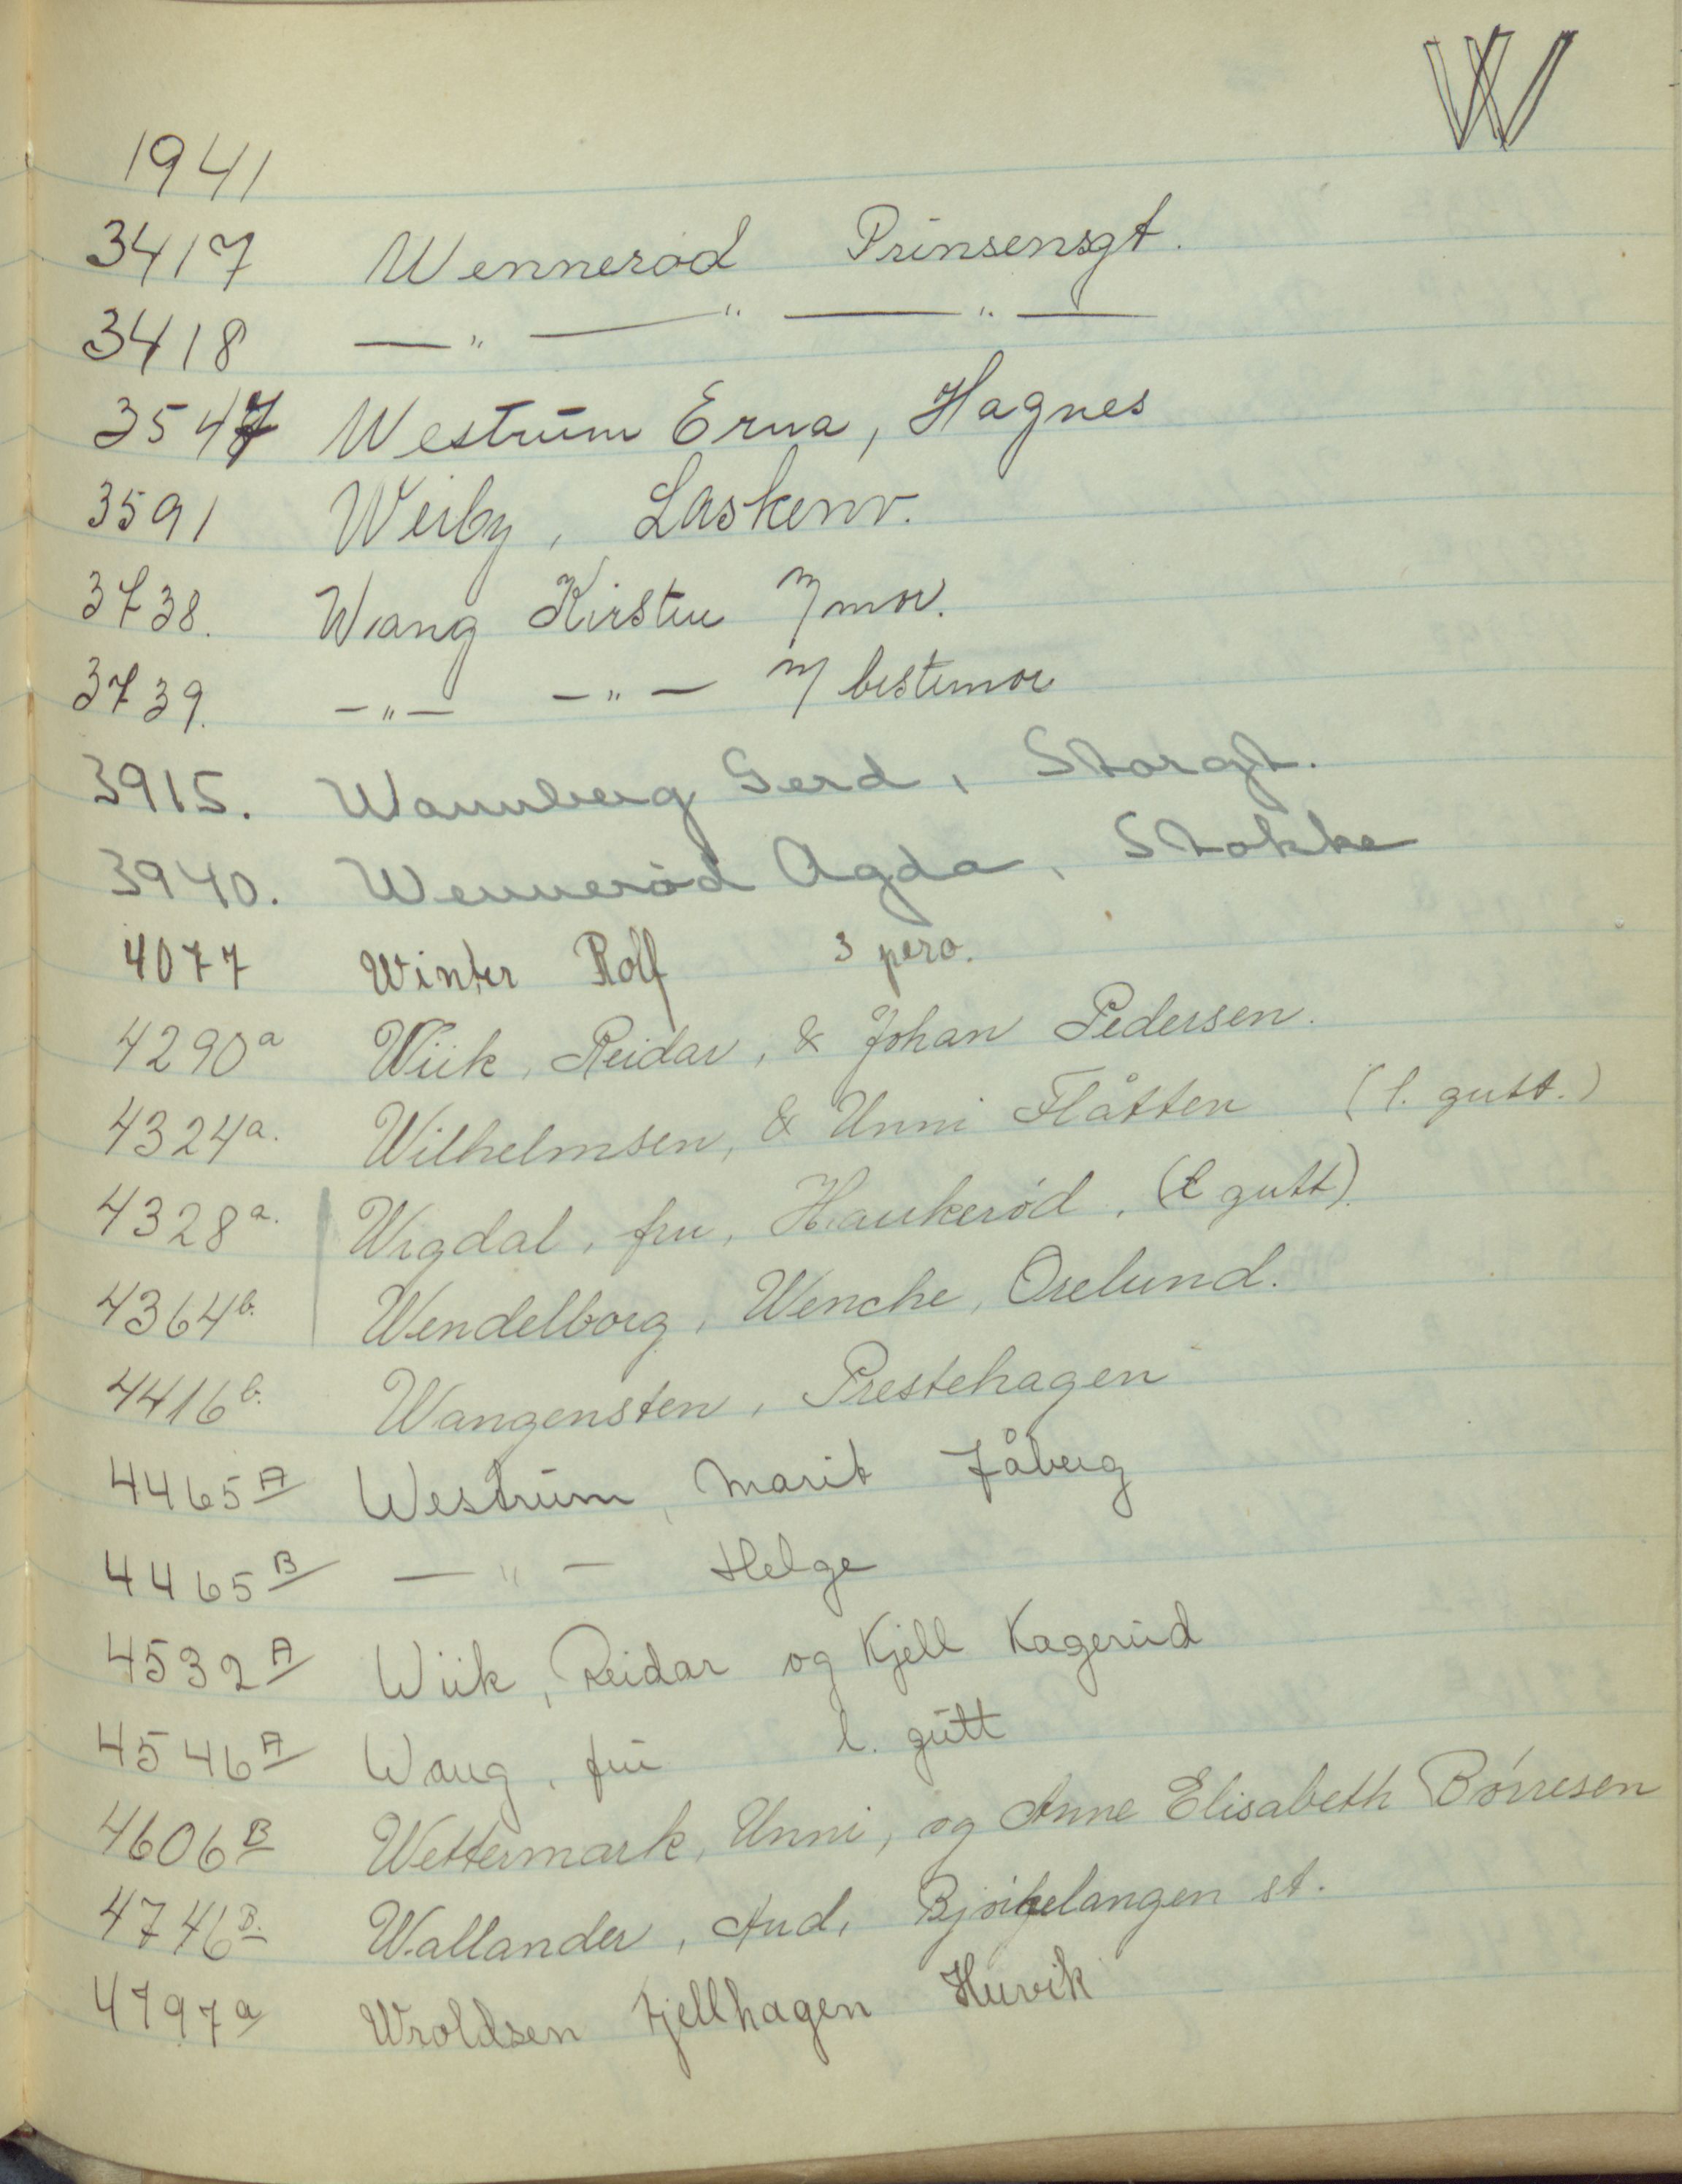 W
1941
3417 Wennerød Prinsensgt.
3418 — " — " — " —
3547 Westrum Erna, Hagnes
3591 Weiby, Laskenv.
3738. Wang Kirsten m/mor.
3739. — " — — " — m/ bestemor
3915. Wannberg Gerd, Storgt.
3940. Wennerød Agda, Stokke
4077 Winter Rolf 3 pers.
4290a Wiik, Reidar, & Johan Pedersen.
4324a. Wilhelmsen, & Unni Flåtten (l. gutt.)
4328a. Wigdal, fru, Haukerød, (l gutt).
4364b. Wendelborg, Wenche, Orelund.
4416b. Wangensten, Prestehagen
4465A Westrum, Marit Jåberg
4465B — " — Helge
4532A Wiik, Reidar og Kjell Kagerud
4546A Wang, fru l. gutt
4606B Wettermark, Unni, og Anne Elisabeth Børresen
4746B. Wallander, Aud, st.
4797a Wroldsen Fjellhagen Huvik